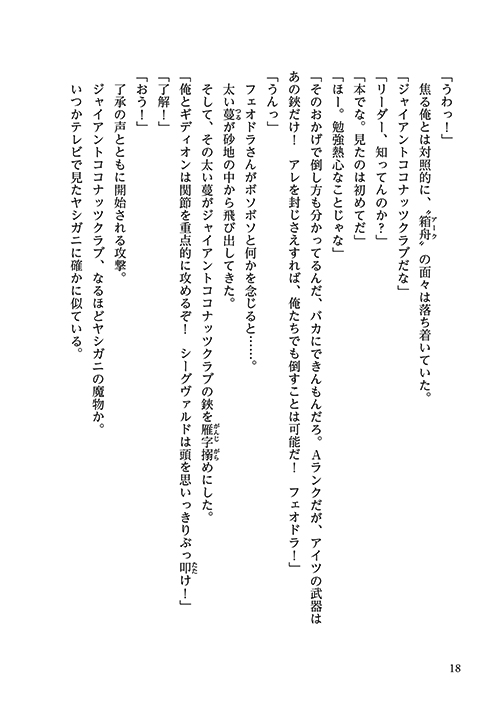 「うわっ！」
焦る俺とは対照的に、〝箱舟〟の面々は落ち着いていた。
アーク
「ジャイアントココナッツクラブだな」
「リーダー、知ってんのか？」
「本でな。見たのは初めてだ」
「ほー。勉強熱心なことじゃな」
「そのおかげで倒し方も分かってるんだ、バカにできんもんだろ。Aランクだが、アイツの武器は
あの鋏だけ！　アレを封じさえすれば、俺たちでも倒すことは可能だ！　フェオドラ！」
「うんっ」
フェオドラさんがボソボソと何かを念じると……。
太い蔓が砂地の中から飛び出してきた。
つる
そして、その太い蔓がジャイアントココナッツクラブの鋏を雁字搦めにした。
がんじがら
「俺とギディオンは関節を重点的に攻めるぞ！　シーグヴァルドは頭を思いっきりぶっ叩け！」
たた
「了解！」
「おう！」
了承の声とともに開始される攻撃。
ジャイアントココナッツクラブ、なるほどヤシガニの魔物か。
いつかテレビで見たヤシガニに確かに似ている。
18